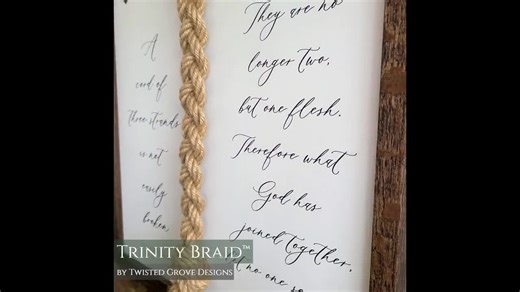 A
cord of
Three strands
is not
easily
broken.
They are no
longer two,
but one flesh.
Therefore what
God has
joined together,
no one
TRINITY BRAID™
BY TWISTED GROVE DESIGNS